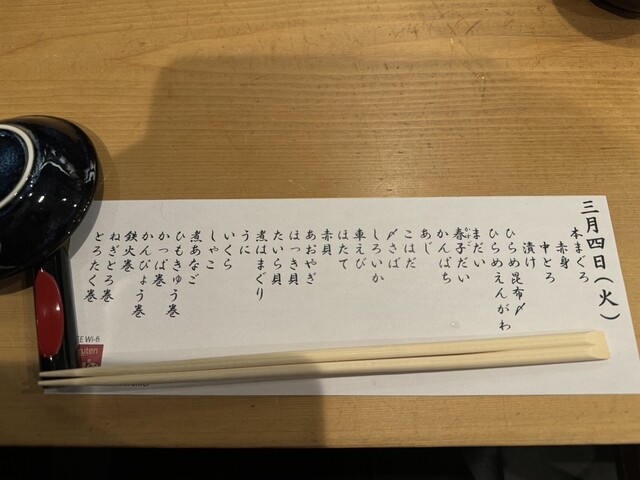 三月四日(火)
本まぐろ
赤身
中とろ
漬け
ひらめ昆布〆
ひらめえんがわ
まだい
春子だい
かすご
かんぱち
あじ
こはだ
〆さば
しろいか
車えび
ほたて
赤貝
あおやぎ
ほっき貝
たいら貝
煮はまぐり
うに
いくら
しゃこ
煮あなご
ひもきゅう巻
かっぱ巻
かんぴょう巻
鉄火巻
ねぎとろ巻
とろたく巻
Wi-Fi